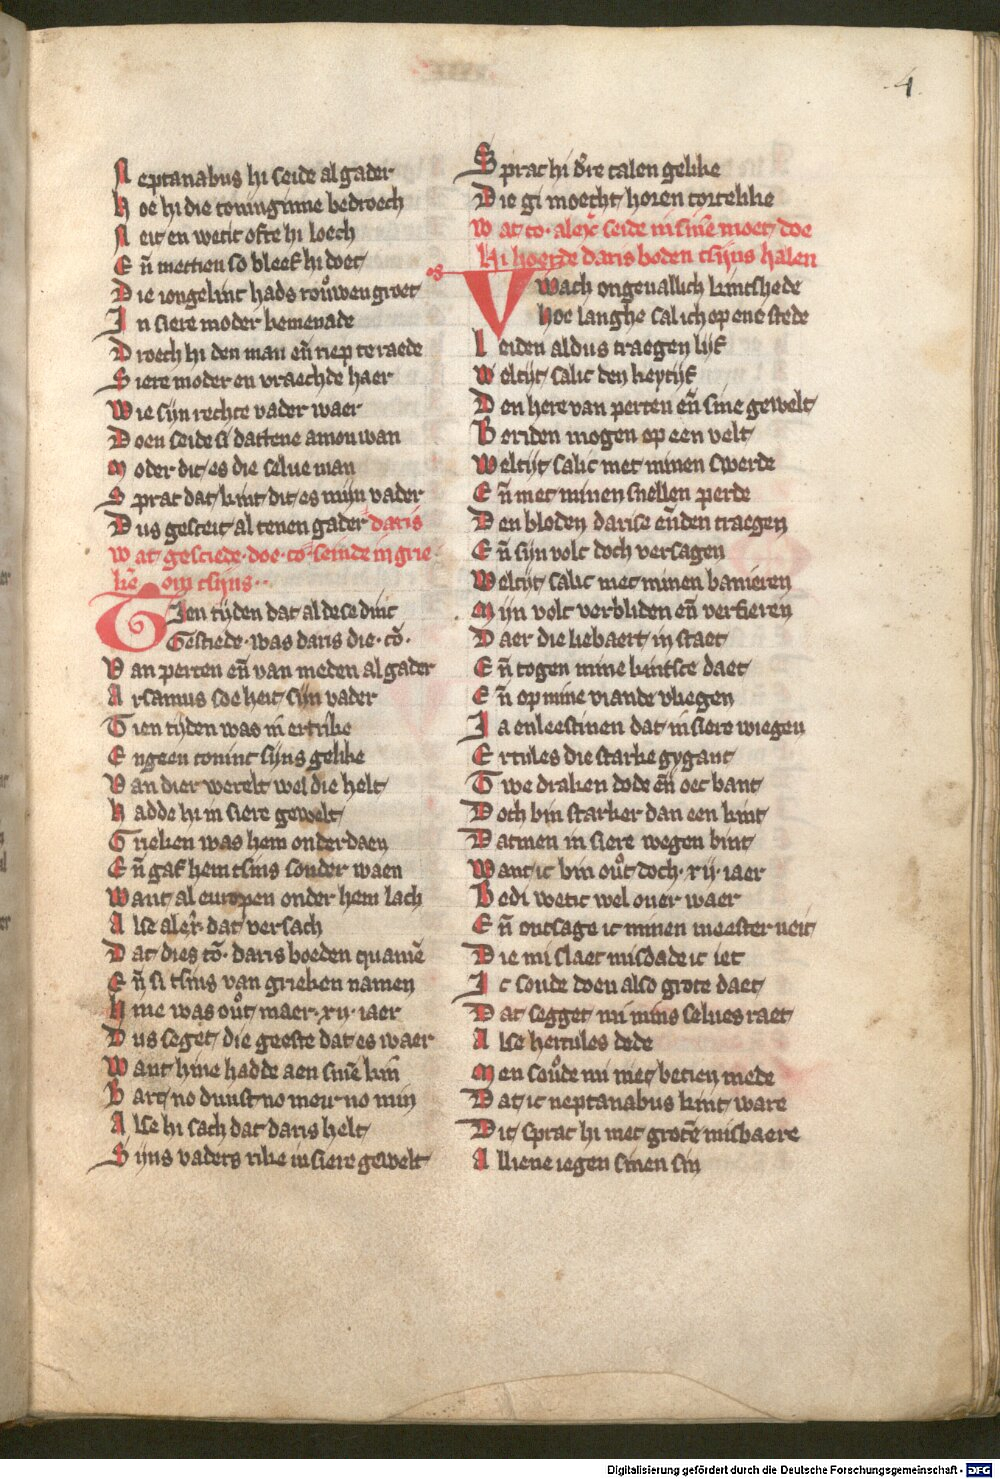 4
Neptanabus hi seide algader
Hoe hi die coninginne bedroech
Neit en wetic ofte hi loech
Eñ mettien so bleef hi doet
Die iongelinc hads rouͦwen groet
In siere moder kemenade
Droech hi den man eñ riep te raede
Siere moder en vraechde haer
Wie sijn rechte vader waer
Doen seide si dattene amon wan
Moder dit es die selue man
Sprac dat kint dit es mijn vader
Dus gesceit al tenen gader daris
Wat gesciede doe co seinde in grie
kē om tsijns
Tien tijden dat al dese dinc
Gesciede was daris die cō
Van percen eñ van meden al gader
Arsamus soe heit sijn vader
Tien tijden was in ertrike
Engeen coninc sijns gelike
Van dier werelt wel die helt
Hadde hi in siere gewelt
Grieken was hem onderdaen
Eñ gaf hem tsins sonder waen
Want al europen onder hem lach
Alse alexr dat versach
Dat dies cō daris boeden quamē
Eñ si tsins van grieken namen
Hine was ouͦt maer xij iaer
Dus seget die geeste dat es waer
Want hine hadde aen sine kin
Bart no dunst no meir no min
Alse hi sach dat daris helt
Sijns vaders rike in siere gewelt
Sprac hi dere talen gelike
Die gi moecht horen cortelike
Wat co alexr seide in sine moet doe
Hi hoerde daris boden tsijns halen
Wach ongeuallich kintshede
Hoe langhe sal ich op ene stede
Leiden aldus traegen lijf
Weltijt salic den keytijf
Den here van percen eñ sine gewelt
Beriden mogen op een velt
Weltijt salic met minen swerde
Eñ met minen snellen perde
Den bloden darise eñ den traegen
Eñ sijn volc doch versagen
Weltijt salic met minen banieren
Mijn volc verbliden eñ versieren
Daer die liebaert in staet
Eñ togen mine kintsce daet
Eñ op mine viande vliegen
Ia en leestmen dat in siere wiegen
Ercules die starke gygant
Twe draken dode eñ oec bant
Doch bin starker dan een kint
Datmen in siere wegen bint
Want ic bin ouͦt doch xij iaer
Bedi wetic wel ouer waer
Eñ ontsage ic minen meester neit
Die mi slaet misdade ic iet
Ic soude doen also grote daet
Dat segget mi mins selues raet
Alse hercules dede
Men souͦde mi niet betien mede
Dat ic neptanabus kint ware
Dit sprac hi met grotē misbaere
Alliene iegen sinen sin
Digitalisierung gefördert durch die Deutsche Forschungsgemeinschaft - DFG